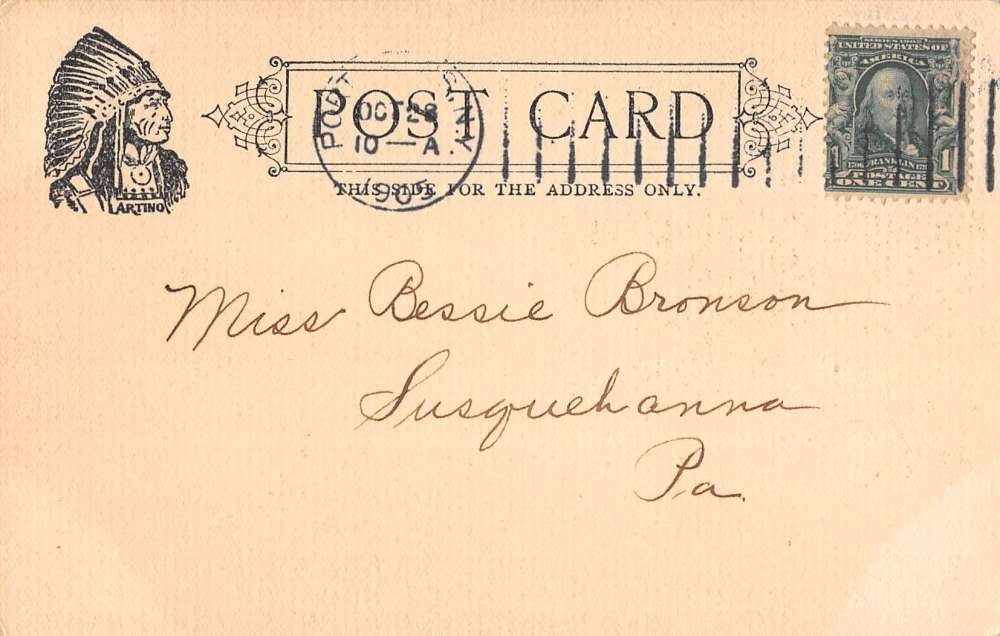 POST CARD
THIS SIDE FOR THE ADDRESS ONLY.
ARTINO
OCT 28
10 — A.
1905
N.Y.
SERIES 1902
UNITED STATES OF
AMERICA
FRANKLIN
POSTAGE
1 1
ONE CENT
Miss Bessie Bronson
Susquehanna
Pa.